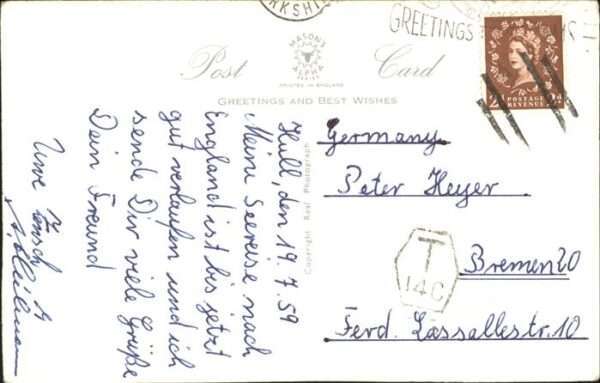 RKSHI
GREETINGS
MASON'S
ALPHA
SERIES
Post Card
PRINTED IN ENGLAND
GREETINGS AND BEST WISHES
POSTAGE
REVENUE
Copyright Real Photograph
Hull, den 19.7.59
Meine Seereise nach
England ist bis jetzt
gut verlaufen und ich
sende Dir viele Grüße
Dein Freund
Uwe
Germany
Peter Heyer
T
14C
Bremen 20
Ferd. Lassallestr. 10